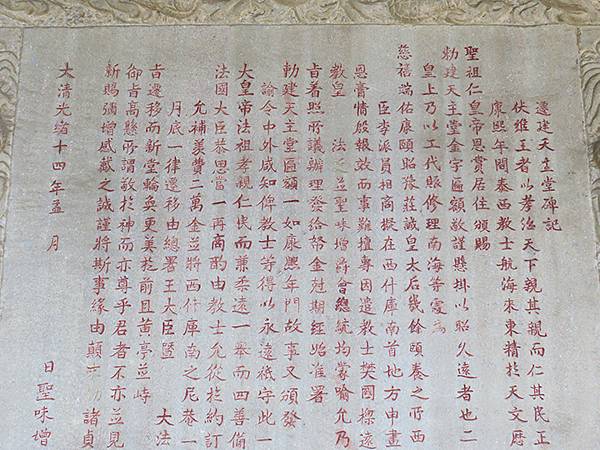 遷建天主堂碑記
伏維王者以孝治天下親其親而仁其民正
康熙年間泰西教士航海來東精於天文曆
聖祖仁皇帝恩賞居住頒賜
勅建天主堂金字匾額敬謹懸掛以昭久遠者也二
皇上乃以工代賑修理南海等處為
慈禧端佑康頤昭豫莊誠皇太后幾餘頤養之所西
臣李派員相商擬在西什庫南首地方申畫
恩膏情殷報效而事難擅專因遣教士樊國樑遠
教皇 法之並聖味增爵會總統均蒙喻允乃
旨著照所議辦理發給帑金尅期經始准署
勅建天主堂匾額一如康熙年門故事又頒發
諭令中外咸知俾教士等得以永遠祇守此一
大皇帝法祖孝親仁民而兼柔遠一舉而四善備
法國大臣恭思當一再商酌由教士允從於約訂
允補差費二萬金並將西什庫南之尼菴一
月底一律遷移由總署王大臣暨 大法
旨遷移而新堂輪奐更美於前且黃亭並峙
御旨高懸所謂敬於神而亦尊乎君者不亦並見
新賜彌增感戴之誠謹將斯事緣由顛 諸貞
大清光緒十四年孟 月 日聖味增